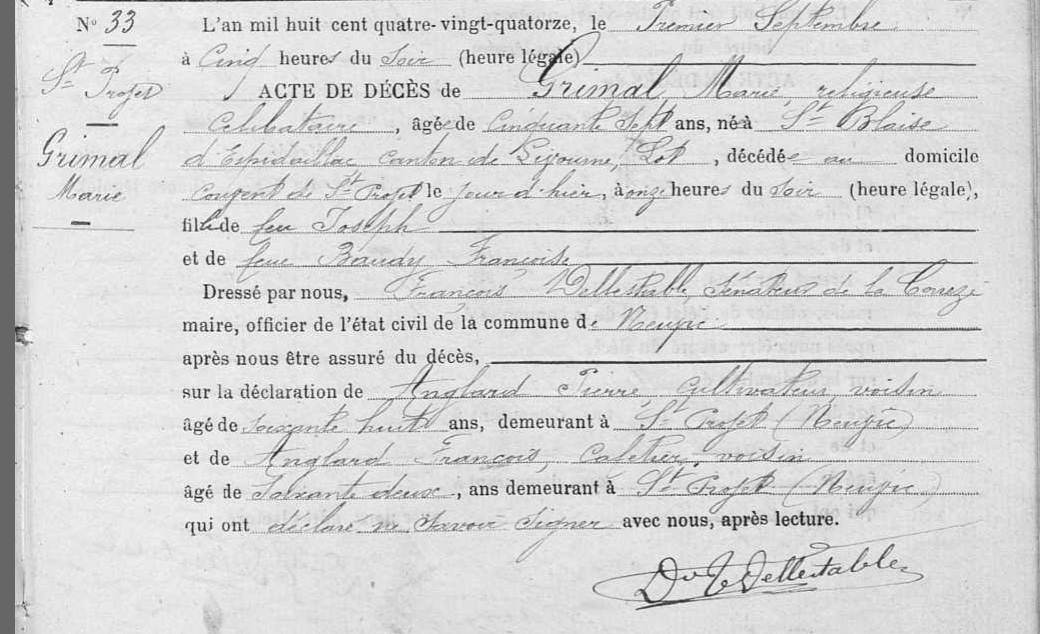 N° 33
St Projet
Grimal
Marie
L'an mil huit cent quatre-vingt-quatorze, le Premier Septembre
à Cinq heures du Soir (heure légale)
ACTE DE DÉCÈS de Grimal, Marie, religieuse
Célibataire, âgée de Cinquante Sept ans, née à St Blaise
d'Espédaillac canton de Livernon, Lot, décédée au domicile
Couvent de St Projet le jour d'hier, à onze heures du soir (heure légale),
fille de feu Joseph
et de feue Baudy Françoise
Dressé par nous, François Dellestable, Sénateur de la Corrèze
maire, officier de l'état civil de la commune de Neuvic
après nous être assuré du décès,
sur la déclaration de Anglard Pierre, cultivateur, voisin
âgé de soixante huit ans, demeurant à St Projet (Neuvic)
et de Anglard François, Cafetier, voisin
âgé de Soixante deux, ans demeurant à St Projet (Neuvic)
qui ont déclaré ne savoir signer avec nous, après lecture.
Dr Dellestable